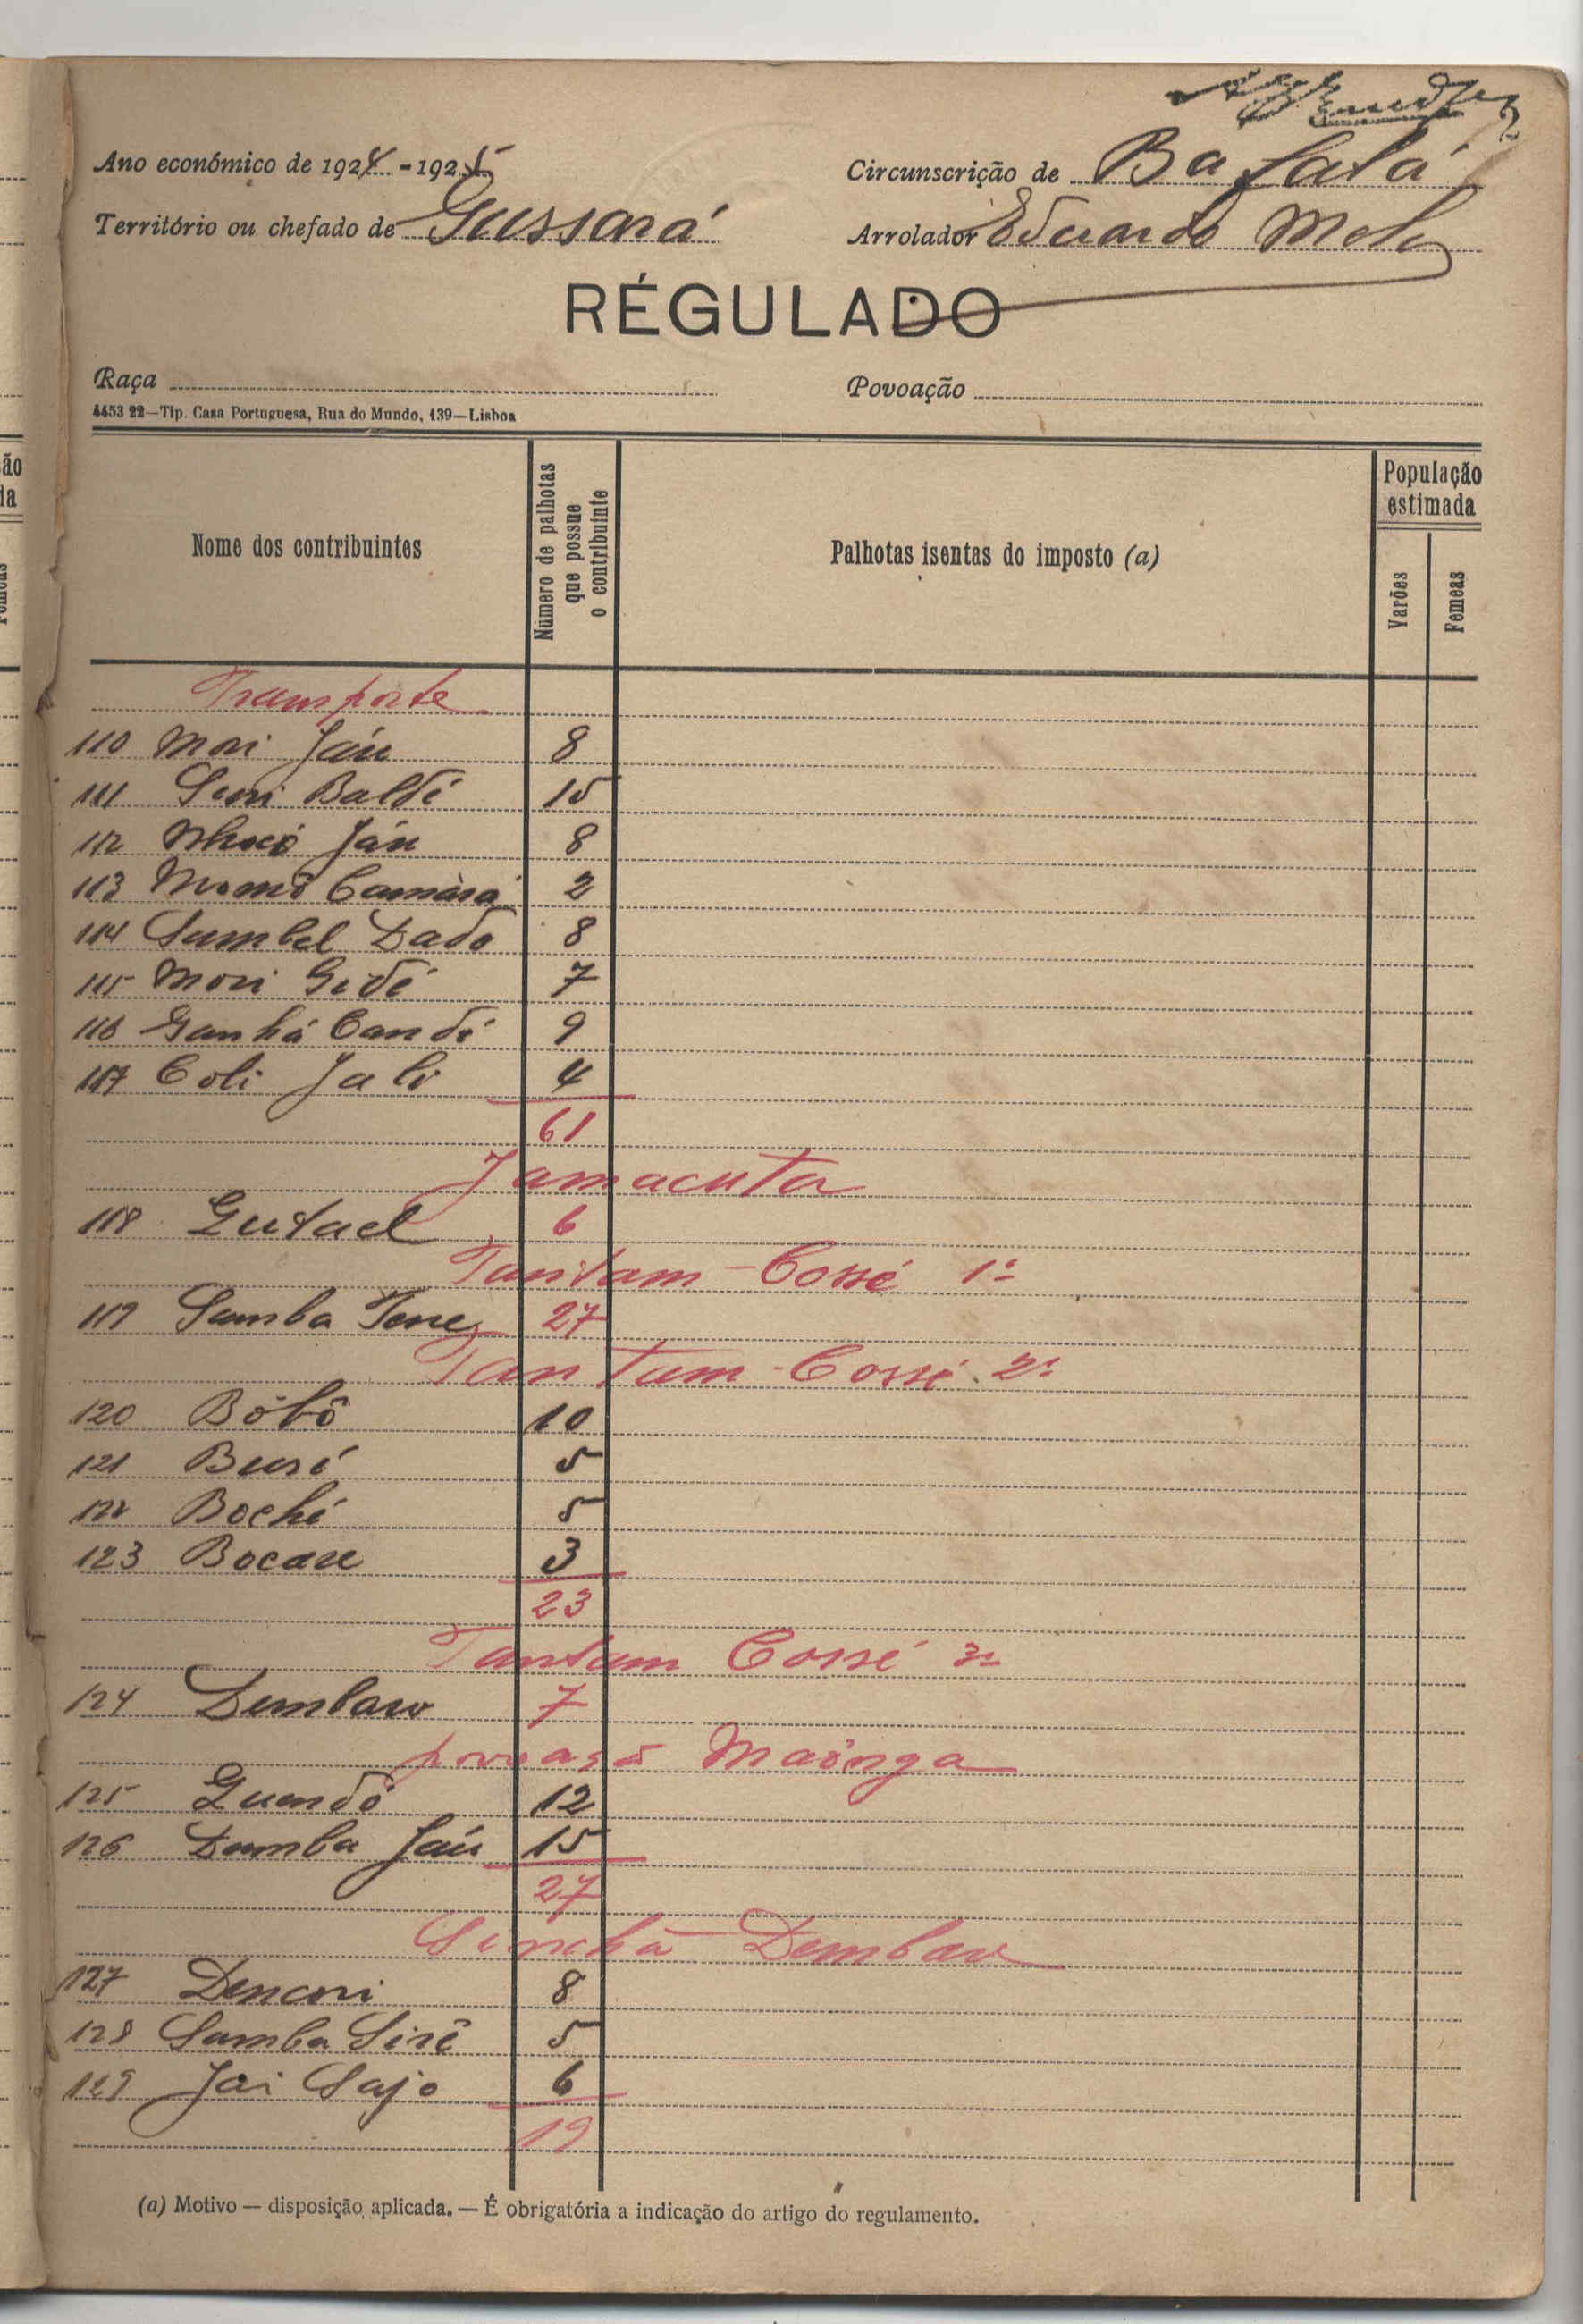 Ano económico de 1924 - 1925
Circunscrição de Bafatá
Território ou chefado de Gussará
Arrolador Eduardo Melo
RÉGULADO
Raça
Povoação
4453 22—Tip. Casa Portuguesa, Rua do Mundo, 139—Lisboa
Nome dos contribuintes
Número de palhotas que possue o contribuinte
Palhotas isentas do imposto (a)
População estimada
Varões
Femeas
Transporte
110 Mori Jáu 8
111 Suri Baldé 15
112 Jáu 8
113 Momó Camàrá 2
114 Sambel Dado 8
115 Mori Gidé 7
116 Ganhá Candé 9
117 Coli Jali 4
61
Jamacuta
118 Gutael 6
Tantam - Cossé 1º
119 Samba Tene 27
Tantam - Cossé 2º
120 Bôbô 10
121 Buré 5
122 Boché 5
123 Bocare 3
23
Tantam Cossé 3º
124 Dembaro 7
povoação Maònga
125 Quendô 12
126 Demba Jáu 15
27
Sinchã Dembaro
127 Dencori 8
128 Samba Sirê 5
129 Jai Sajo 6
19
(a) Motivo — disposição aplicada. — É obrigatória a indicação do artigo do regulamento.